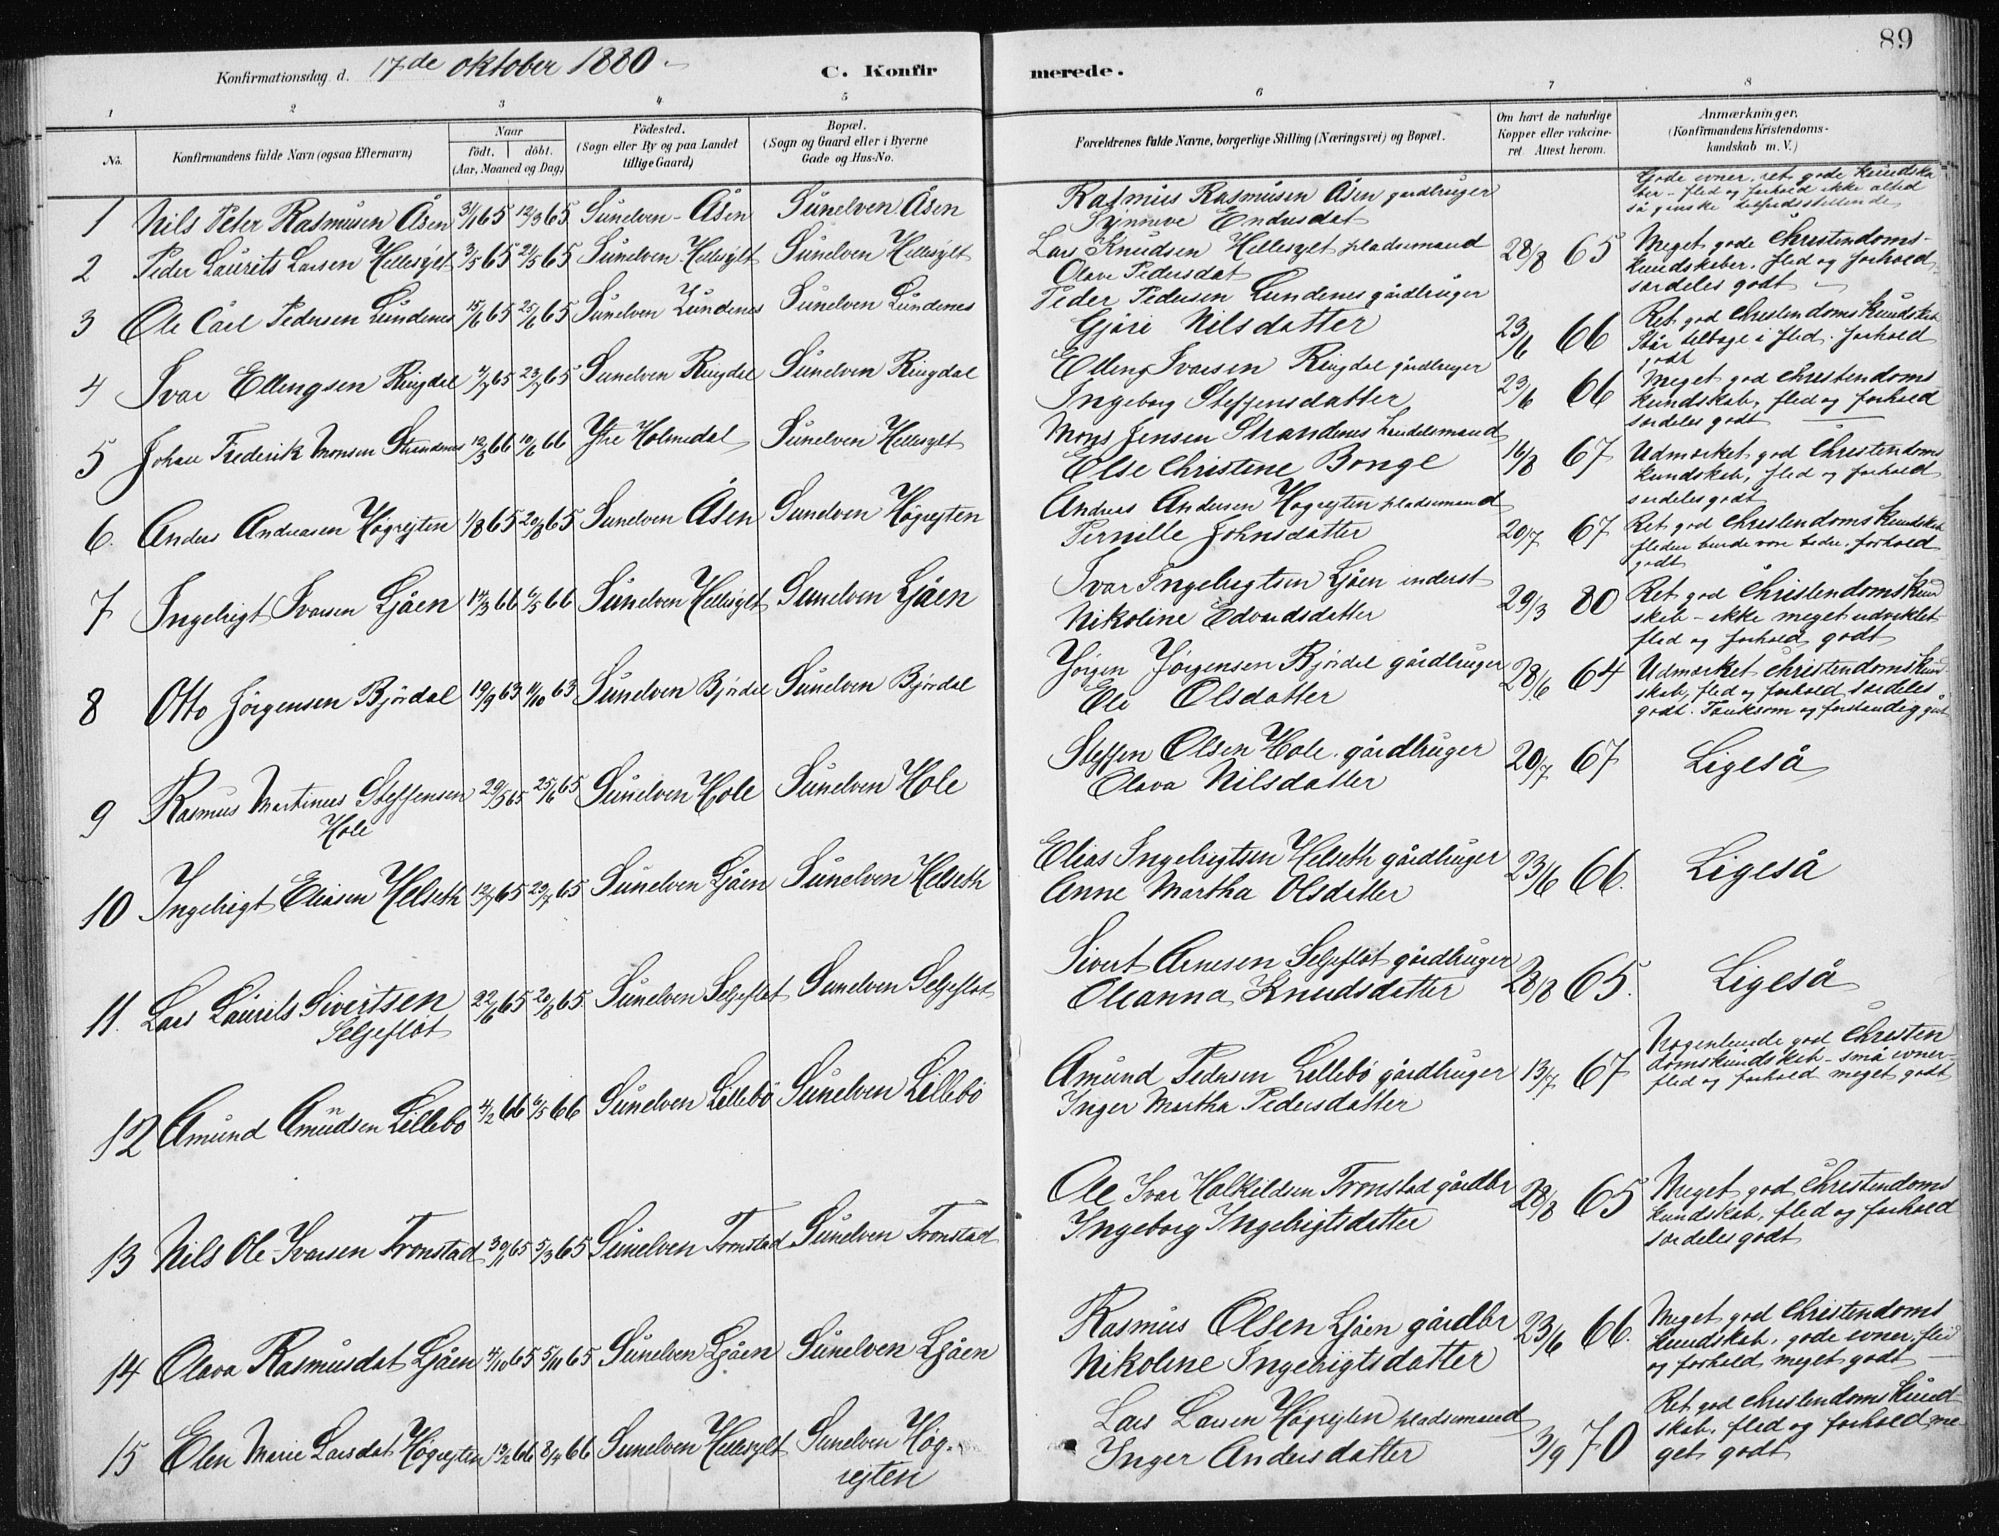 89
Konfirmationsdag d. 17de oktober 1880
C. Konfirmerede.
1 2 3 4 5 6 7 8
No.
Konfirmandens fulde Navn (ogsaa Efternavn)
Naar
født. døbt.
(Aar, Maaned og Dag)
Fødested.
(Sogn eller By og paa Landet
tillige Gaard)
Bopæl.
(Sogn og Gaard eller i Byerne
Gade og Hus-No.
Forældrenes fulde Navne, borgerlige Stilling (Næringsvei) og Bopæl.
Om havt de naturlige
Kopper eller vakcine-
ret. Attest herom.
Anmærkninger.
(Konfirmandens Kristendoms-
kundskab m. V.)
1 Nils Peter Rasmusen Åsen 31/1 65 12/3 65 Sunelven - Åsen Sunelven Åsen
Rasmus Rasmusen Åsen gardbruger
Synneve Endresdat
Gode evner, ret gode kundska
ber - flid og forhold ikke altid
så ganske tilfredsstillende
2 Peder Laurits Larsen Hellesylt 3/5 65 21/5 65 Sunelven Hellesylt Sunelven Hellesylt
Lars Knudsen Hellesylt pladsemand
Olave Pedersdat
28/8 65
Meget gode Christendoms-
kundskaber. flid og forhold
særdeles godt
3 Ole Carl Pedersen Lundenes 15/6 65 25/6 65 Sunelven Lundenes Sunelven Lundenes
Peder Pedersen Lundenes gårdbruger
Gjøri Nilsdatter
23/6 66
Ret god Christendomskundskab
Står tilbage i flid. forhold
godt
4 Ivar Ellingsen Ringdal 4/7 65 23/7 65 Sunelven Ringdal Sunelven Ringdal
Elling Ivarsen Ringdal gårdbruger
Ingeborg Steffensdatter
23/6 66
Meget god Christendoms
kundskab, flid og forhold
særdeles godt
5 Johan Frederik Monsen Strandenes 12/3 66 10/6 66 Ytre Holmedal Sunelven Hellesylt
Mons Jensen Strandenes handelsmand
Else Christine Bonge
16/8 67
Udmærket god Christendoms
kundskab, flid og forhold
særdeles godt
6. Anders Andreasen Høgreiten 1/8 65 20/8 65 Sunelven Åsen Sunelven Høgrejten
Andreas Andersen Høgrejten pladsemand
Pernille Johnsdatter
20/7 67
Ret god Christendomskundskab
fliden burde være bedre, forhold
godt
7 Ingebrigt Ivarsen Ljåen 14/3 66 6/5 66 Sunelven Hellesylt Sunelven Ljåen
Ivar Ingebrigtsen Ljåen inderst
Nikoline Edvardsdatter
29/3 80
Ret god Christendomskund
skab - ikke meget udviklet
flid og forhold godt
8 Otto Jørgensen Bjørdal 19/9 63 11/10 63 Sunelven Bjørdal Sunelven Bjørdal
Jørgen Jørgensen Bjørdal gårdbruger
Eli Olsdatter
28/6 64
Udmærket Christendomskund
skab, flid og forhold særdeles
godt. Tænksom og forstandig gut
9 Rasmus Martinus Steffensen
Hole
29/5 65 25/6 65 Sunelven Hole Sunelven Hole
Steffen Olsen Hole gårdbruger
Olava Nilsdatter
20/7 67
Ligeså
10 Ingebrigt Eliasen Helseth 12/7 65 23/7 65 Sunelven Ljåen Sunelven Helseth
Elias Ingebrigtsen Helseth gårdbruger
Anne Martha Olsdatter
23/6 66.
Ligeså
11. Lars Laurits Sivertsen
Seljeflot
22/6 65 20/8 65. Sunelven Seljeflot Sunelven Seljeflot
Sivert Arnesen Seljeflot gårdbruger
Oleanna Knudsdatter
28/8 65.
Ligeså
12 Amund Amundsen Lillebø 4/2 66 6/5 66 Sunelven Lillebø Sunelven Lillebø
Amund Pedersen Lillebø gårdbruger
Inger Martha Pedersdatter
13/7 67
Nogenlunde god Christen
domskundskab - små evner -
flid og forhold meget godt
13 Nils Ole Ivarsen Tronstad 30/1 65 5/3 65 Sunelven Tronstad Sunelven Tronstad
Ole Ivar Halkildsen Tronstad gårdbr
Ingeborg Ingebrigtsdatter
28/8 65
Meget god Christendoms
kundskab, flid og forhold
særdeles godt
14 Olava Rasmusdat Ljåen 4/10 65 5/11 65 Sunelven Ljåen Sunelven Ljåen
Rasmus Olsen Ljåen gårdbr
Nikoline Ingebrigtsdatter
23/6 66.
Meget god Christendoms
kundskab, gode evner, flid
og forhold meget godt
15 Elen Marie Larsdat Høgrejten 13/2 66 8/4 66 Sunelven Hellesylt Sunelven Høg-
rejten
Lars Larsen Høgrejten pladsemand
Inger Andersdatter
3/9 70
Ret god Christendomskund
skab, flid og forhold me
get godt